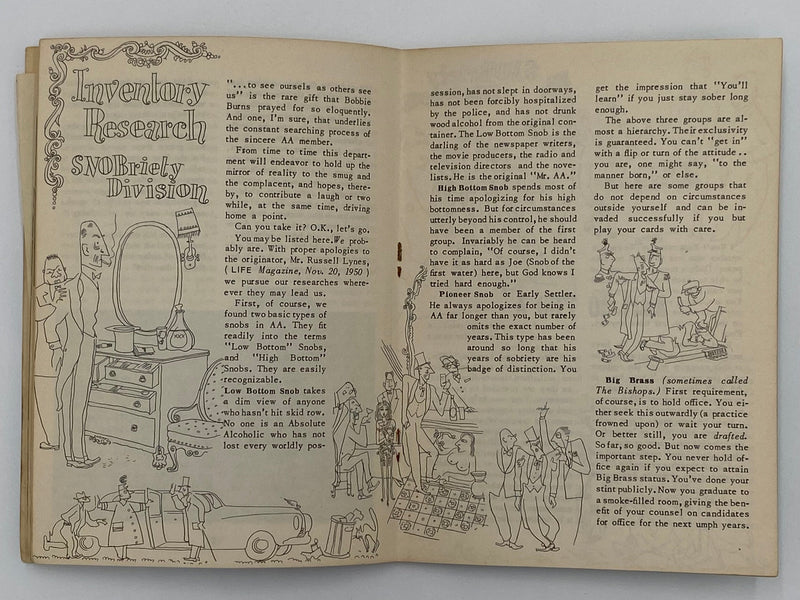 Inventory
Research
SNOBriety
Division
"...to see oursels as others see
us" is the rare gift that Bobbie
Burns prayed for so eloquently.
And one, I'm sure, that underlies
the constant searching process of
the sincere AA member.
From time to time this depart-
ment will endeavor to hold up the
mirror of reality to the smug and
the complacent, and hopes, there-
by, to contribute a laugh or two
while, at the same time, driving
home a point.
Can you take it? O.K., let's go.
You may be listed here. We prob-
ably are. With proper apologies to
the originator, Mr. Russell Lynes,
(LIFE Magazine, Nov. 20, 1950)
we pursue our researches where-
ever they may lead us.
First, of course, we
found two basic types of
snobs in AA. They fit
readily into the terms
"Low Bottom" Snobs,
and "High Bottom"
Snobs. They are easily
recognizable.
Low Bottom Snob takes
a dim view of anyone
who hasn't hit skid row.
No one is an Absolute
Alcoholic who has not
lost every worldly pos-
session, has not slept in doorways,
has not been forcibly hospitalized
by the police, and has not drunk
wood alcohol from the original con-
tainer. The Low Bottom Snob is the
darling of the newspaper writers,
the movie producers, the radio and
television directors and the nove-
lists. He is the original "Mr. AA."
High Bottom Snob spends most of
his time apologizing for his high
bottomness. But for circumstances
utterly beyond his control, he should
have been a member of the first
group. Invariably he can be heard
to complain, "Of course, I didn't
have it as hard as Joe (Snob of the
first water) here, but God knows I
tried hard enough."
Pioneer Snob or Early Settler.
He always apologizes for being in
AA far longer than you, but rarely
omits the exact number of
years. This type has been
around so long that his
years of sobriety are his
badge of distinction. You
get the impression that "You'll
learn" if you just stay sober long
enough.
The above three groups are al-
most a hierarchy. Their exclusivity
is guaranteed. You can't "get in"
with a flip or turn of the attitude ..
you are, one might say, "to the
manner born," or else.
But here are some groups that
do not depend on circumstances
outside yourself and can be in-
vaded successfully if you but
play your cards with care.
Big Brass (sometimes called
The Bishops.) First requirement,
of course, is to hold office. You ei-
ther seek this outwardly (a practice
frowned upon) or wait your turn.
Or better still, you are drafted.
So far, so good. But now comes the
important step. You never hold of-
fice again if you expect to attain
Big Brass status. You've done your
stint publicly. Now you graduate to
a smoke-filled room, giving the ben-
efit of your counsel on candidates
for office for the next umph years.